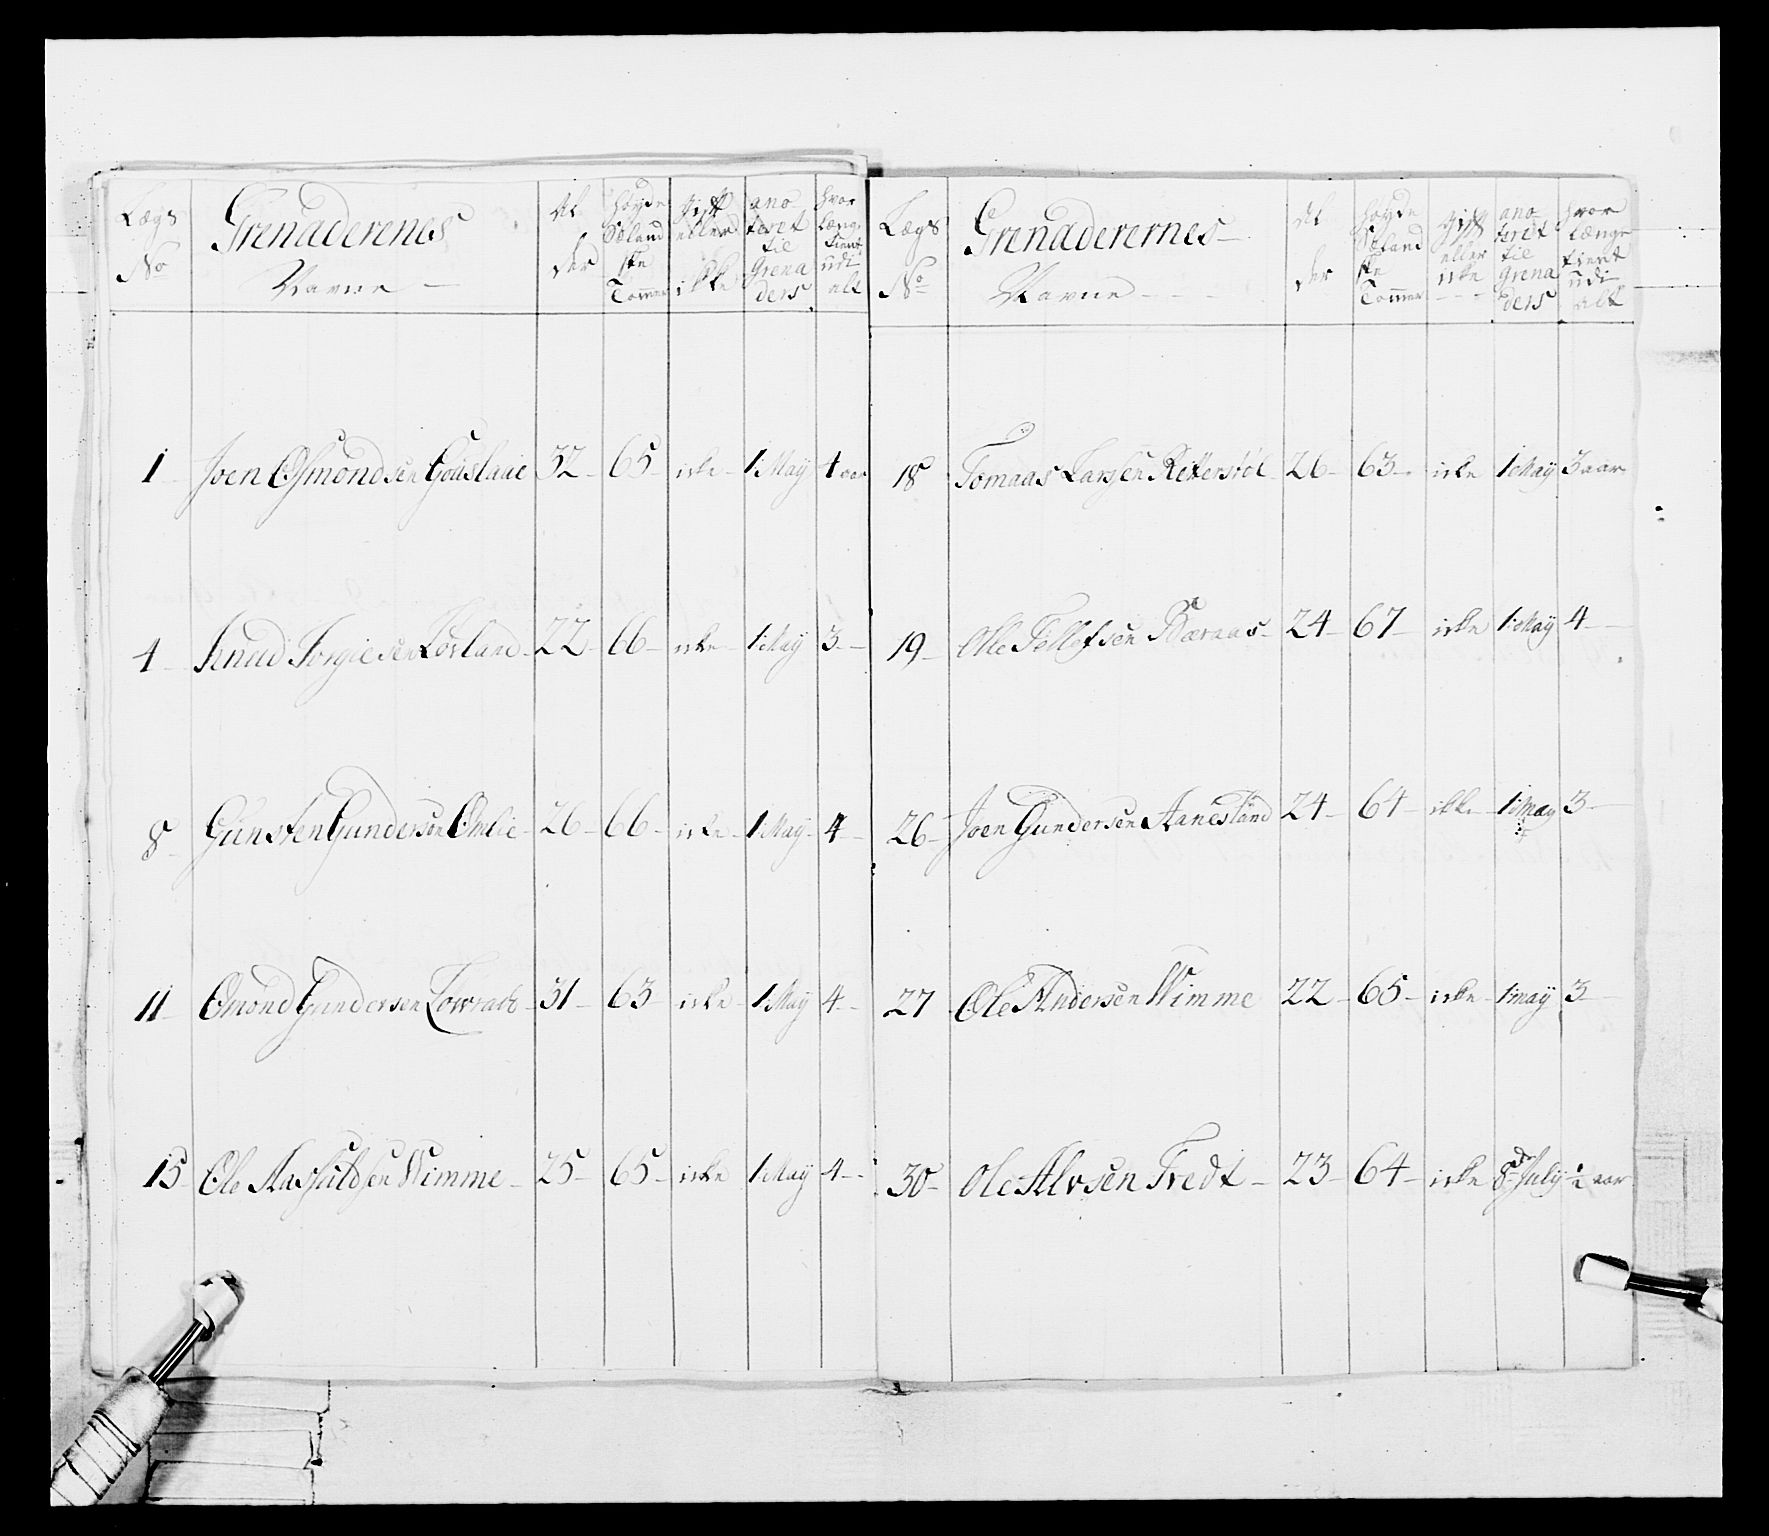 Lægs No
Grenaderenes Navne
Al der
høyde Sæland ske Tommer
gift eller ikke
ano teret til Grena ders
hvor længe tient udi alt
1 Joen Osmondsen Goaslaae 32 65 icke 1 May 4 aar
4 Knud Torgiesen Lovland 22 66 icke 1 May 3
8 Gunsten Gundersen Omlie 26 66 icke 1 May 4
11 Omond Gundersen 31 63 icke 1 May 4
15 Ole Aasfuldsen Wimme 25 65 icke 1 May 4
Lægs No
Grenaderernes Navne
Al der
høyde Sæland ske Tommer
gift eller icke
ano teret til Grena ders
hvor længe tient udi alt
18 Tomaas Larsen Retterstøl 26 63 icke 1 May 3 aar
19 Olle Tellefsen Bæraas 24 67 icke 1 May 4
26 Joen Gundersen Aanesland 24 64 ikke 1 May 3
27 Ole Andersen Wimme 22 65 icke 1 may 3
30 Ole Alvsen Tredt 23 64 icke 8de July ½ aar